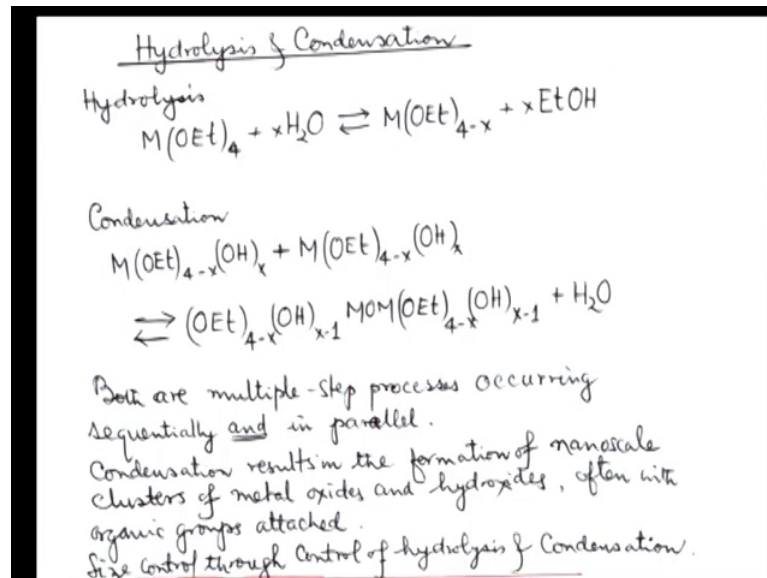 Hydrolysis & Condensation
Hydrolysis
M(OEt)₄ + xH₂O ⇌ M(OEt)₄₋ₓ + xEtOH
Condensation
M(OEt)₄₋ₓ(OH)ₓ + M(OEt)₄₋ₓ(OH)ₓ
⇌ (OEt)₄₋ₓ(OH)ₓ₋₁ MOM(OEt)₄₋ₓ(OH)ₓ₋₁ + H₂O
Both are multiple-step processes occurring
sequentially and in parallel.
Condensation results in the formation of nanoscale
clusters of metal oxides and hydroxides, often with
organic groups attached.
Size control through control of hydrolysis & Condensation.